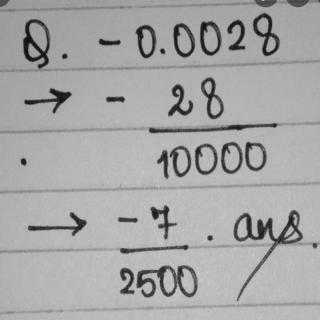 Q. - 0.0028
→ - 28
10000
→ -7
2500 . ans.